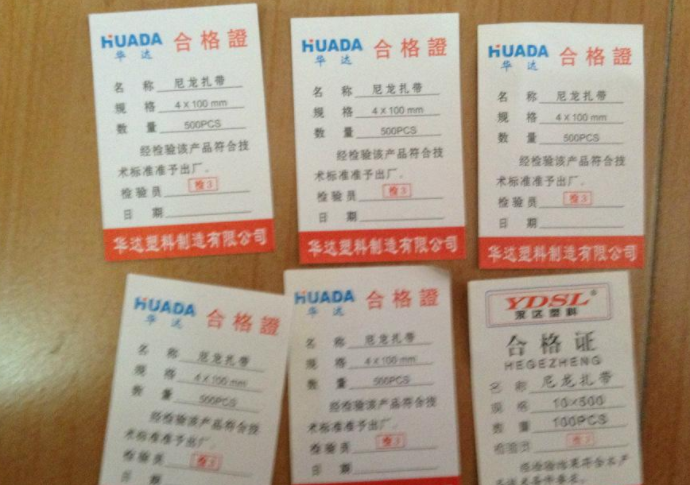 HUADA 合格證
华达
名 称 尼龙扎带
规 格 4X100mm
数 量 500PCS
经检验该产品符合技
术标准准予出厂。
检验员 检3
日 期
华达塑料制造有限公司
HUADA 合格證
华达
名 称 尼龙扎带
规 格 4X100mm
数 量 500PCS
经检验该产品符合技
术标准准予出厂。
检验员 检3
日 期
华达塑料制造有限公司
HUADA 合格證
华达
名 称 尼龙扎带
规 格 4X100mm
数 量 500PCS
经检验该产品符合技
术标准准予出厂。
检验员 检3
日 期
华达塑料制造有限公司
HUADA 合格證
华达
名 称 尼龙扎带
规 格 4X100mm
数 量 500PCS
经检验该产品符合技
术标准准予出厂。
检验员 检3
日 期
HUADA 合格證
华达
名 称 尼龙扎带
规 格 4X100mm
数 量 500PCS
经检验该产品符合技
术标准准予出厂。
检验员 检3
日 期
YDSL®
塑料
合格证
HEGEZHENG
名 称 尼龙扎带
规 格 10×500
数 量 100PCS
检验员
经检验结果符合本产